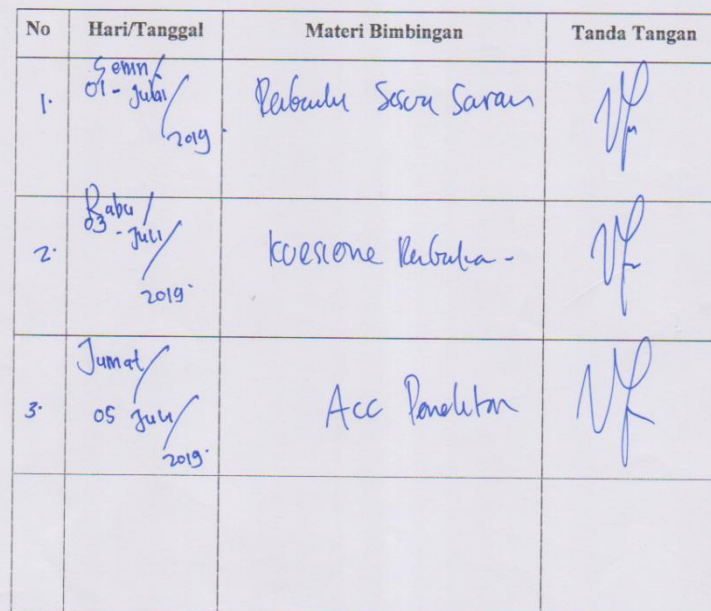 No Hari/Tanggal Materi Bimbingan Tanda Tangan
1. Senin/
01 - Juli/
2019. Sesuai Saran
2. Rabu/
03 - Juli/
2019.
3. Jumat/
05 Juli/
2019. Acc Penelitan